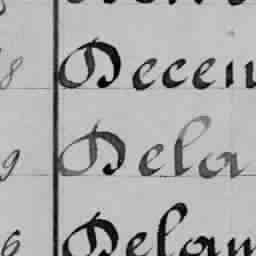 8 Decem
9 Dela
6 Delam